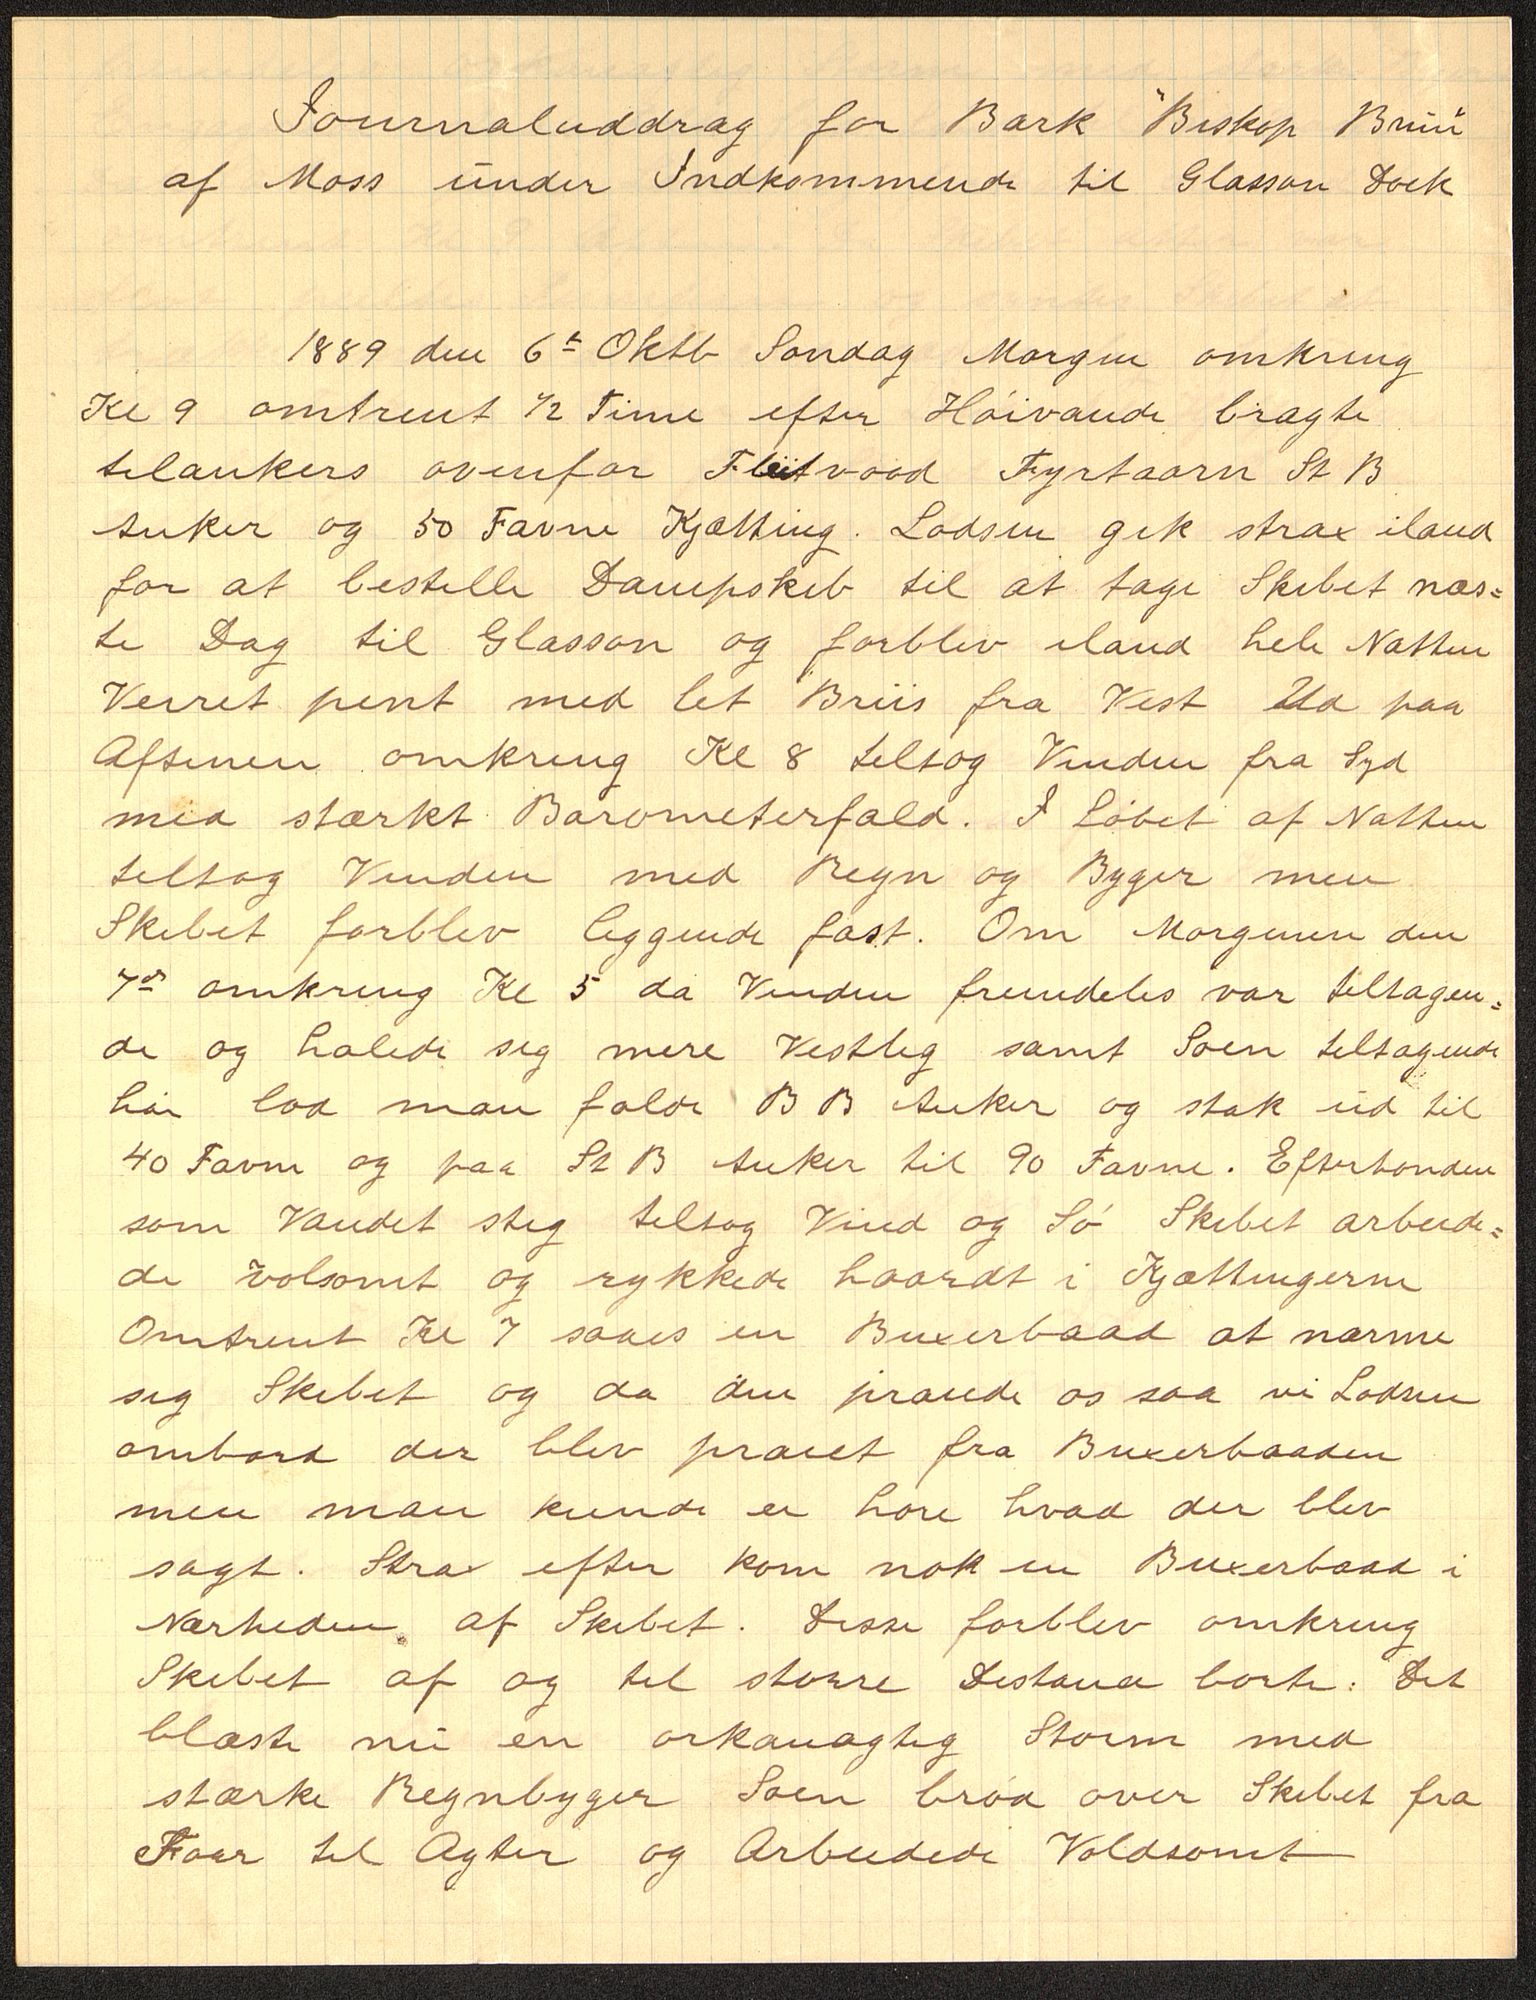 Journaluddrag for Bark "Biskop Brun"
af Moss under Indkommende til Glasson Dock
1889 den 6te Oktb Søndag Morgen omkring
Kl 9 omtrent 1/2 Time efter Høivande bragte
tilankers ovenfor Fleetwood Fyrtaarn St B
Anker og 50 Favne Kjætting. Lodsen gik strax iland
for at bestille Dampskib til at tage Skibet næs=
te Dag til Glasson og forblev iland hele Natten
Veiret pent med let Briis fra Vest Ud paa
Aftenen omkring Kl 8 tiltog Vinden fra Syd
med stærkt Barometerfald. I Løbet af Natten
tiltog Vinden med Regn og Byger men
Skibet forblev liggende fast. Om Morgenen den
7de omkring Kl 5 da Vinden fremdeles var tiltagen=
de og halede sig mere Vestlig samt Søen tiltagende
høi lod man falde B B Anker og stak ud til
40 Favne og paa St B Anker til 90 Favne. Efterhonden
som Vandet steg tiltog Vind og Sø Skibet arbeide=
de volsomt og rykkede haardt i Kjættingerne
Omtrent Kl 7 saaes en Buxerbaad at nærme
sig Skibet og da den praiede os saa vi Lodsen
ombord der blev praiet fra Buxerbaaden
men man kunde ei høre hvad der blev
sagt. Strax efter kom nok en Buxerbaad i
Nærheden af Skibet. Disse forblev omkring
Skibet af og til større Distance borte. Det
blæste nu en orkanagtig Storm med
stærke Regnbyger Søen brød over Skibet fra
Foor til Agter og Arbeidede Voldsomt